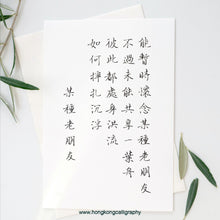 能暫時懷念某種老朋友
不過未能共享一葉舟
彼此都處身洪流
如何掙扎沉浮
某種老朋友
www.hongkongcalligraphy.com